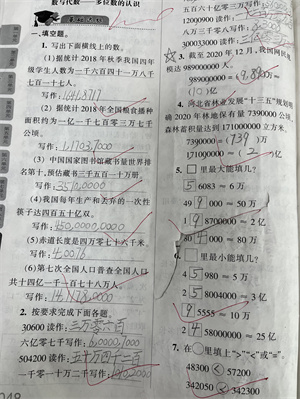 数与代数——多位数的认识
一、填空题。
1. 写出下面横线上的数。
(1) 据统计 2018 年秋季我国四年
级学生人数为一千六百四十一万八千
七百一十七人。
写作:
(2) 据统计 2018 年全国粮食播种
面积约为一亿一千七百零三万七千
公顷。
写作:
(3) 中国国家图书馆藏书量世界排
名第十,预估藏书三千五百一十万册。
写作: 35100000
(4) 我国每年生产和丢弃的一次性
筷子达四百五十亿双。
写作:
(5) 赤道长度是四万零七十六千米。
写作: 40076
(6) 第七次全国人口普查全国人口
共十四亿一千一百七十八万人。
写作:
2. 按要求完成下面各题。
30600 读作: 三万零六百
六亿零七千写作: 600007000
504200 读作:
一千零一十万二千写作:
五百六十亿零三万写作:
12000900 读作:
八千零二万零四百写作:
300033000 读作:
3. 截至 2020 年 12 月,我国网民规
模达 989000000 人。
989000000 =
4. 河北省林业发展“十三五”规划明
确 2020 年林地保有量 7390000 公顷,
森林蓄积量达到 171000000 立方米。
7390000 = ( 739 )万
171000000 ≈ ( 2 )亿
5. □里最大能填几?
5 6083 ≈ 6 万
49 000 ≈ 50 万
1 8700000 ≈ 2 亿
80 000 ≈ 80 万
6. □里最小能填几?
4 5980 ≈ 5 万
2 58004000 ≈ 3 亿
9 5555 ≈ 10 万
2 58000000 ≈ 25 亿
7. 在○里填上“>”“<”或“=”。
48300 < 57200
342050 < 342300
048